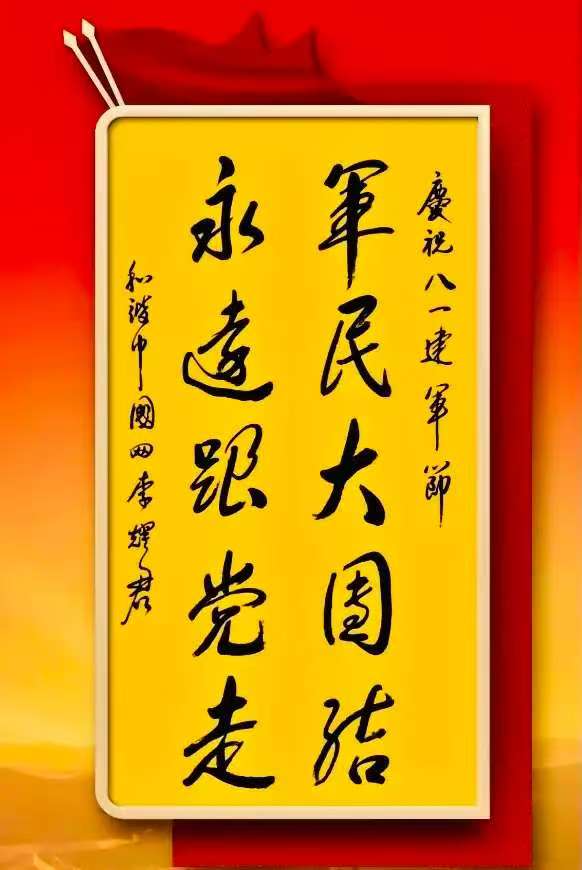 慶祝八一建軍節
軍民大團结
永遠跟党走
和谐中國网李耀君